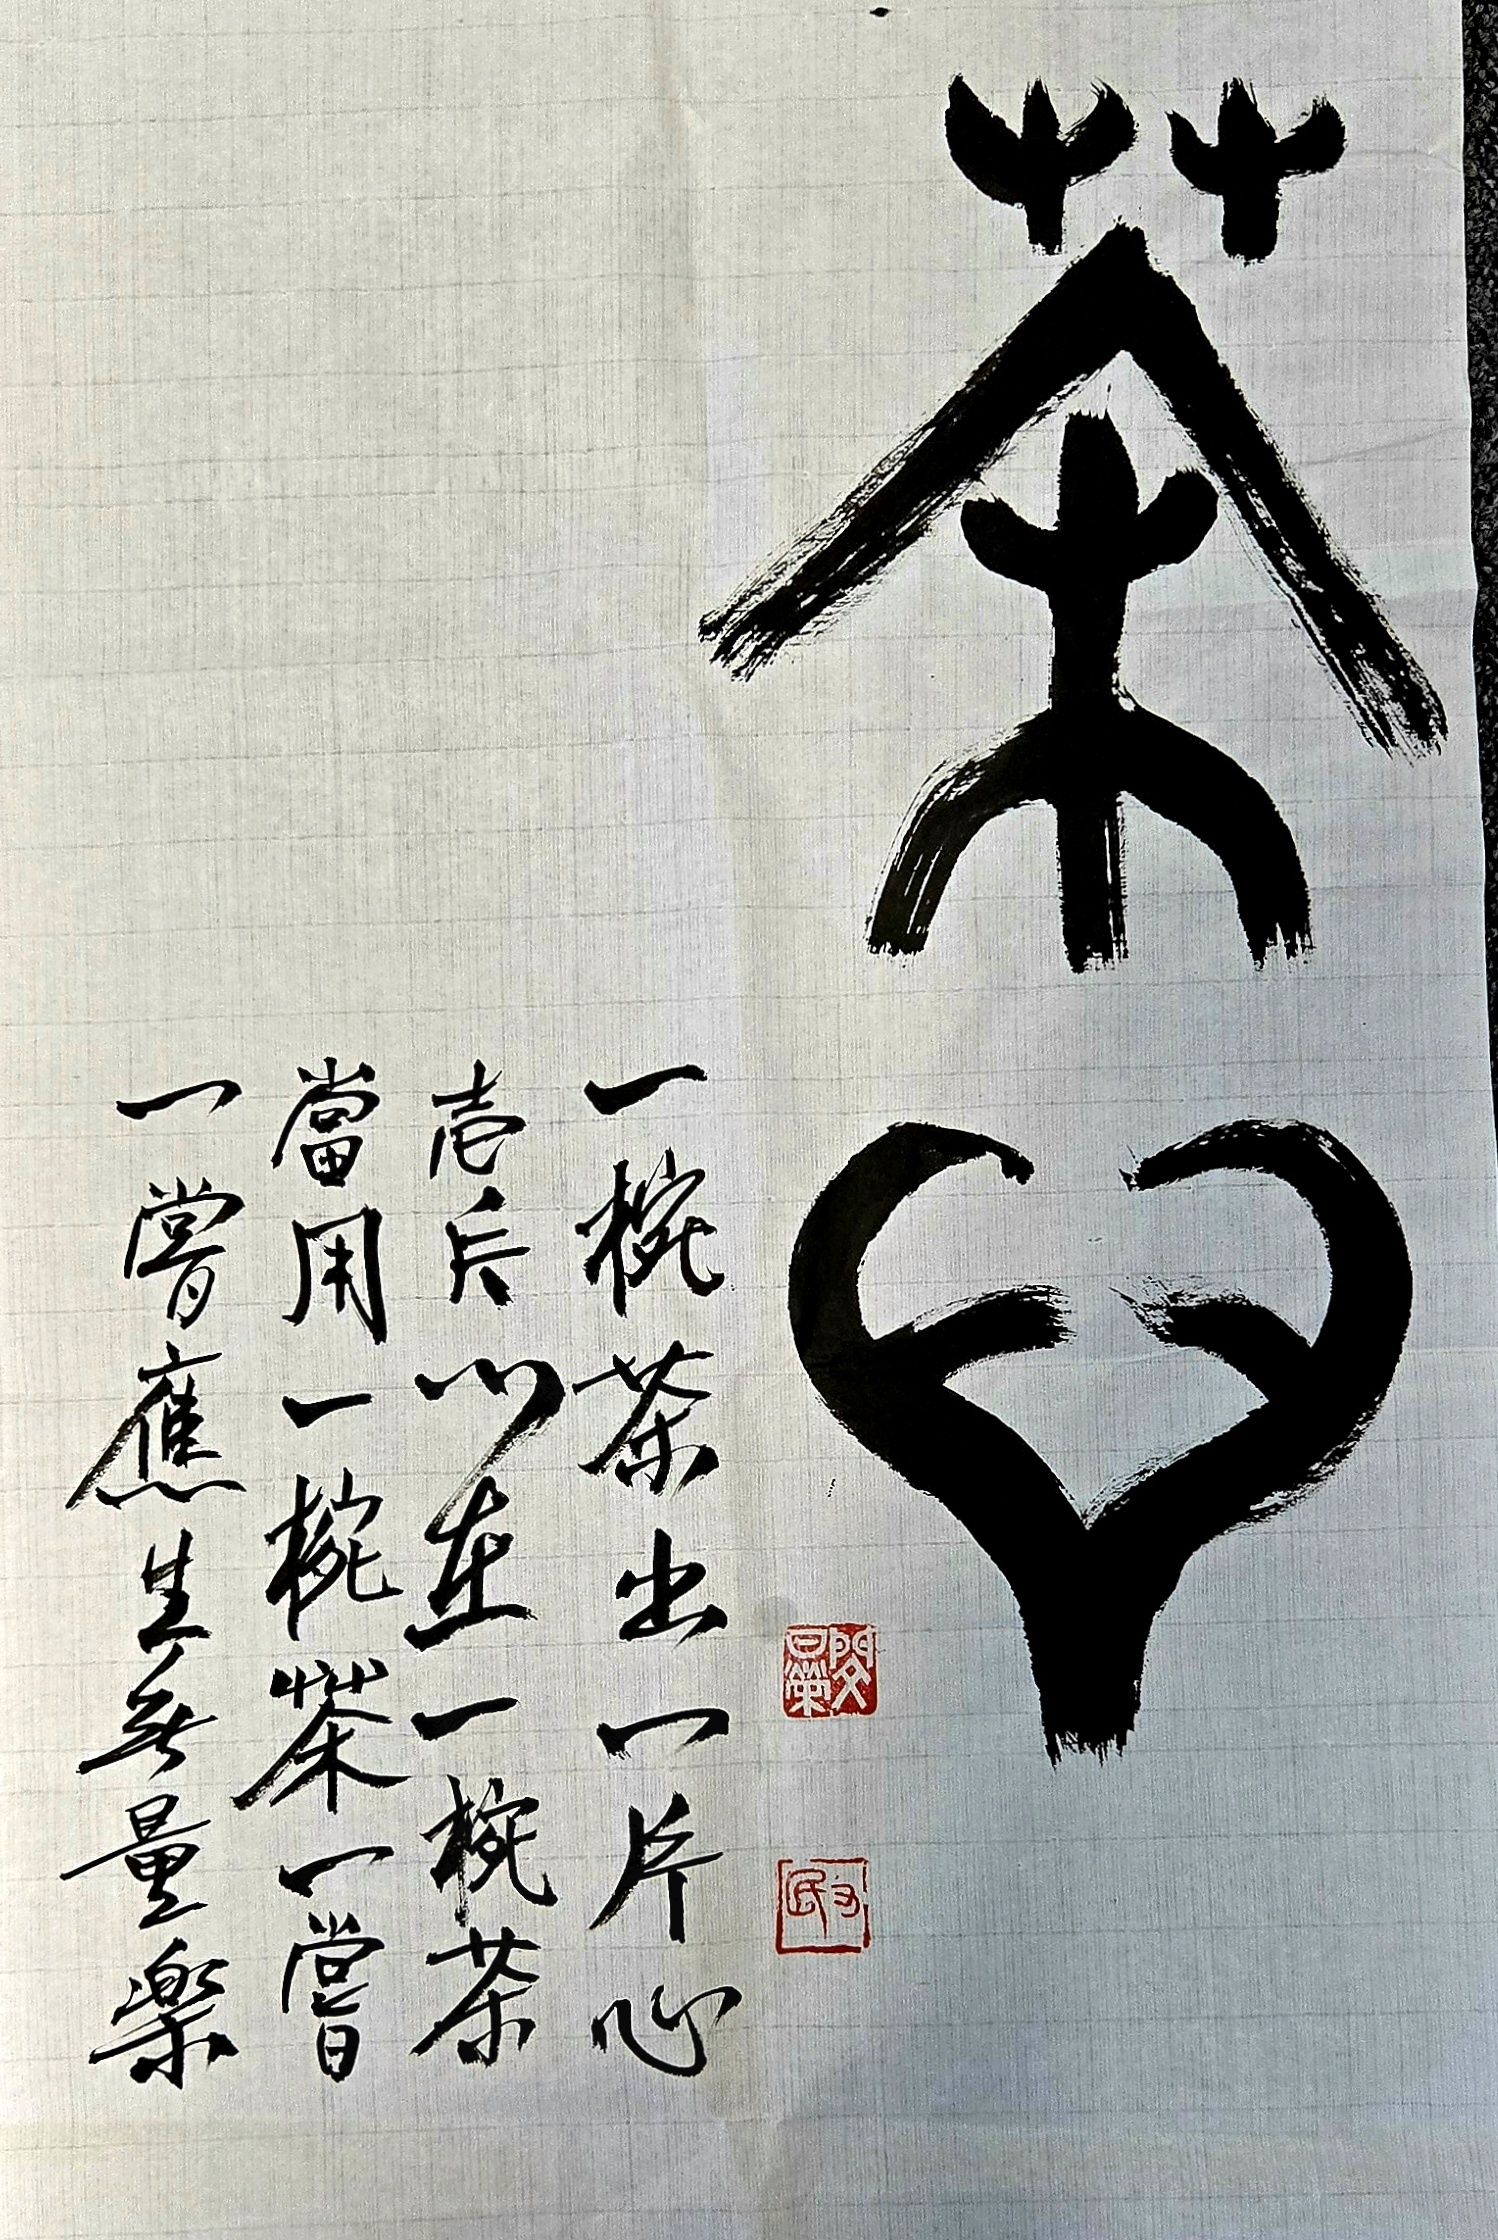 茶心
一椀茶出一片心
壱片心在一椀茶
當用一椀茶一嘗
一嘗應生無量樂